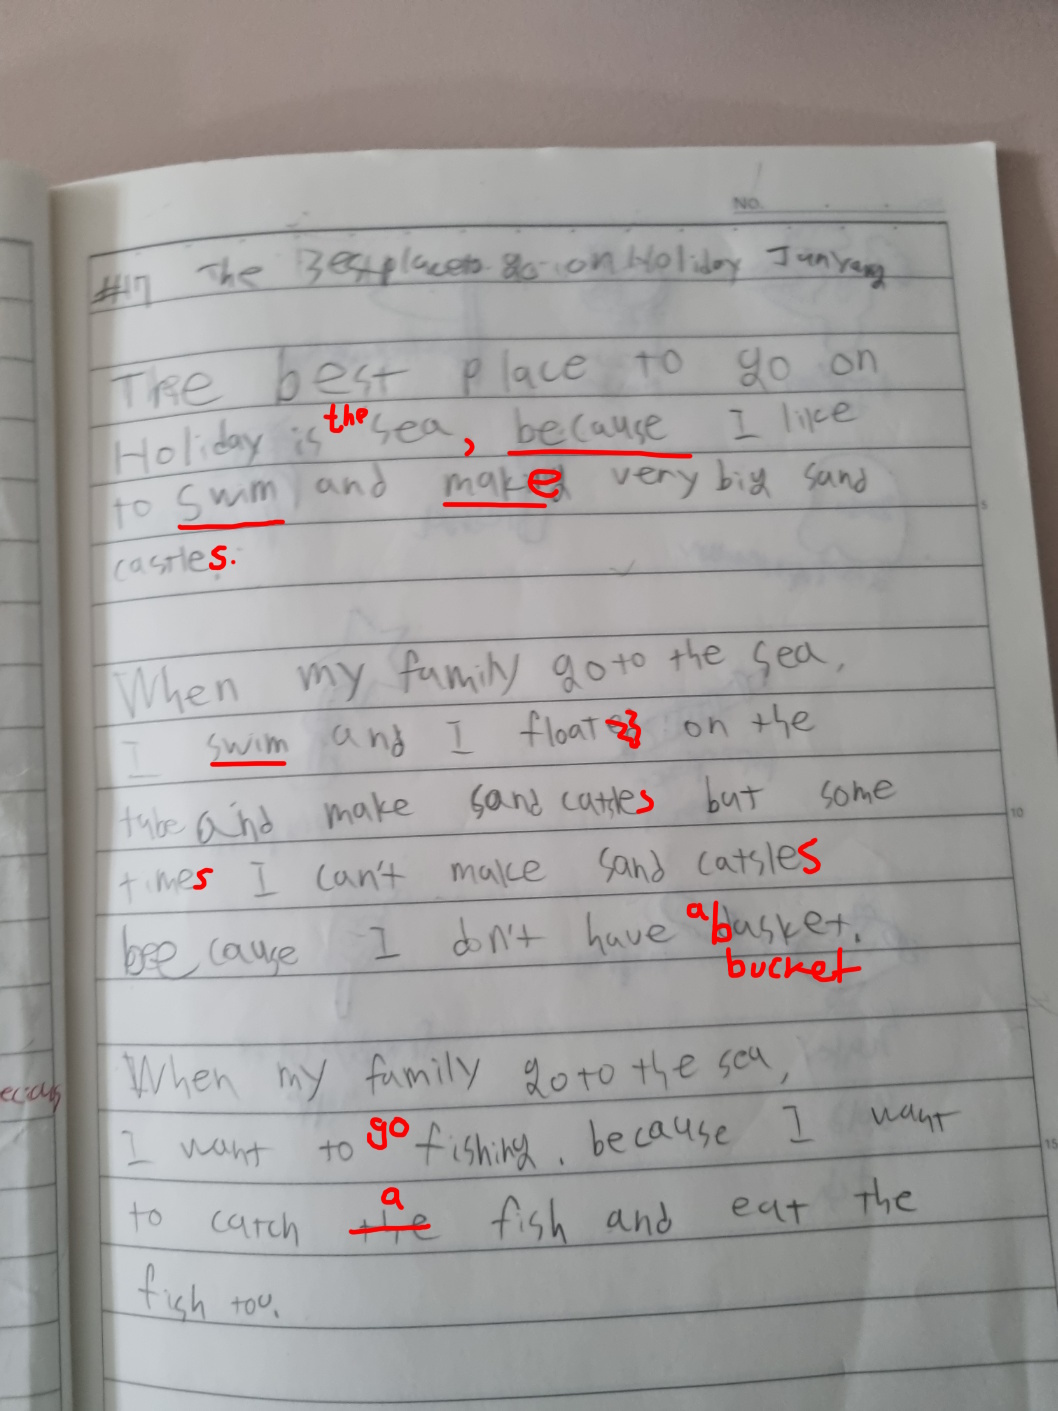 NO.
#17 The Best place to go on Holiday Junyang
The best place to go on
Holiday is the sea, because I like
to swim and make very big sand
castles.
When my family go to the sea,
I swim and I float on the
tube and make sand catsles but some
times I can't make sand catsles
beecause I don't have a basket.
bucket
When my family go to the sea,
I want to go fishing. because I want
to catch the a fish and eat the
fish too.
5
10
15